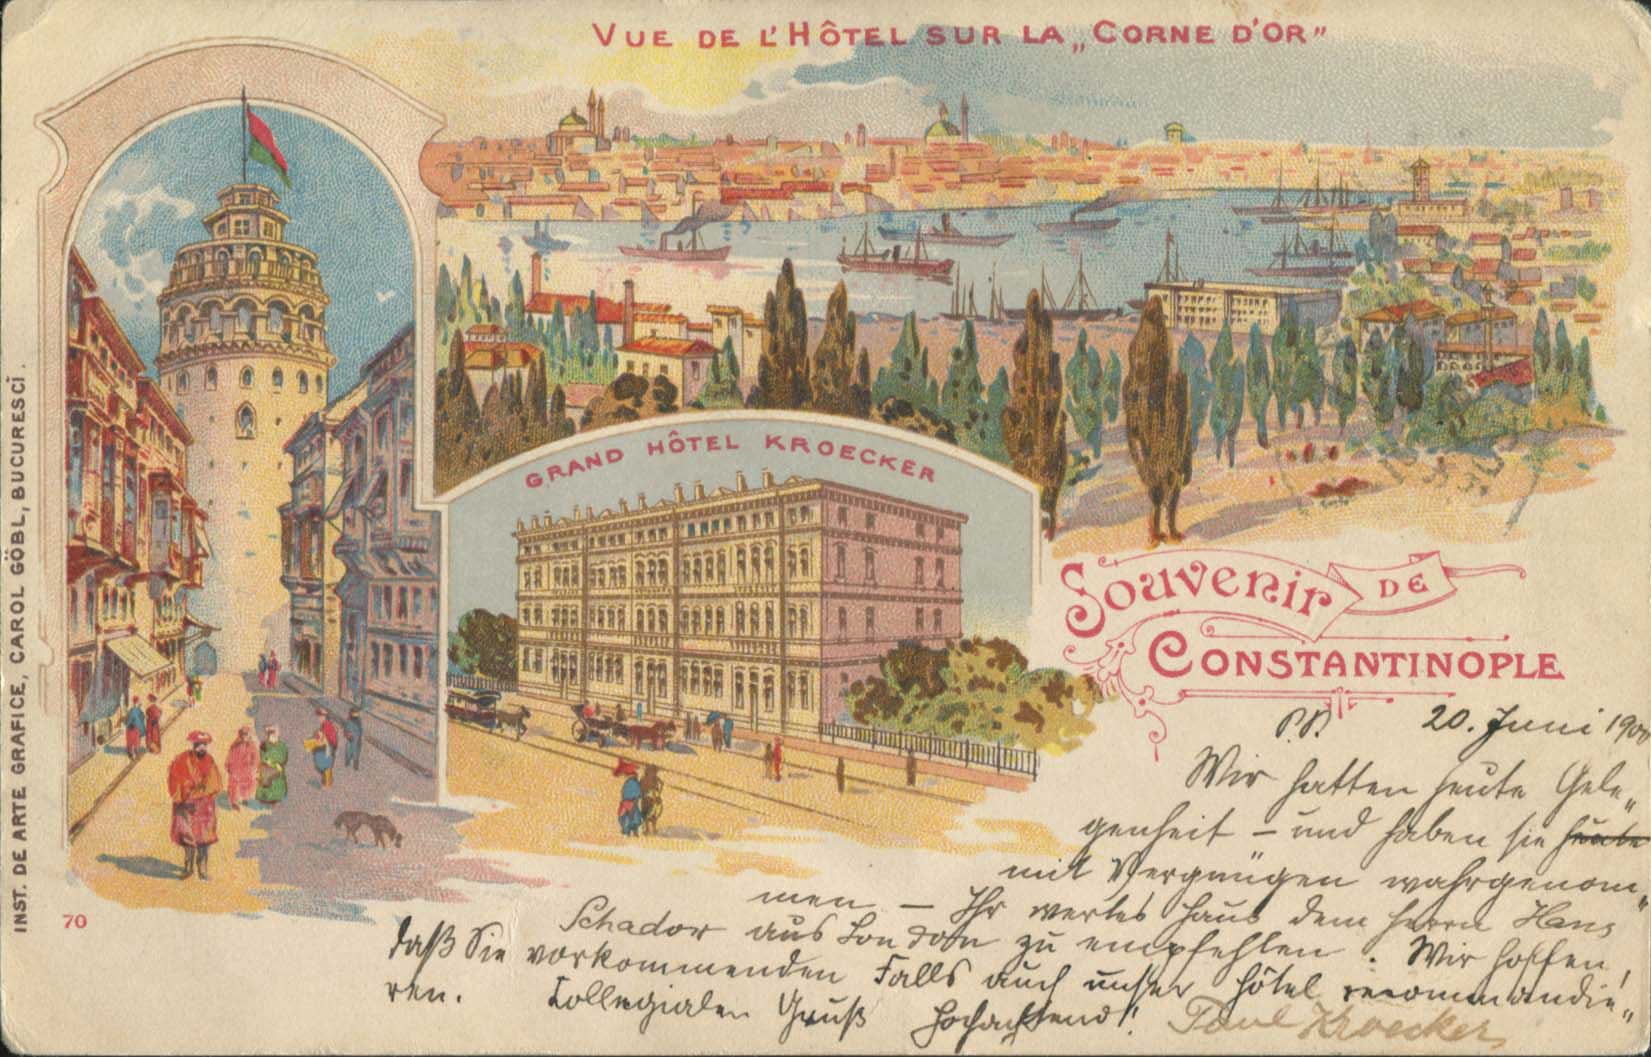 VUE DE L'HÔTEL SUR LA „CORNE D'OR"
GRAND HÔTEL KROECKER
SOUVENIR DE
CONSTANTINOPLE
INST. DE ARTE GRAFICE, CAROL GÖBL, BUCURESCĬ.
70
P.P. 20. Juni 1900
Wir hatten heute Gele„
genheit – und haben sie heute
mit Vergnügen wahrgenom„
men – Ihr wertes Haus dem Herrn Hans
Schador aus London zu empfehlen. Wir hoffen,
daß Sie vorkommenden Falls auch unser Hôtel recommandie„
ren. Collegialen Gruß Hochachtend!
Paul Kroecker